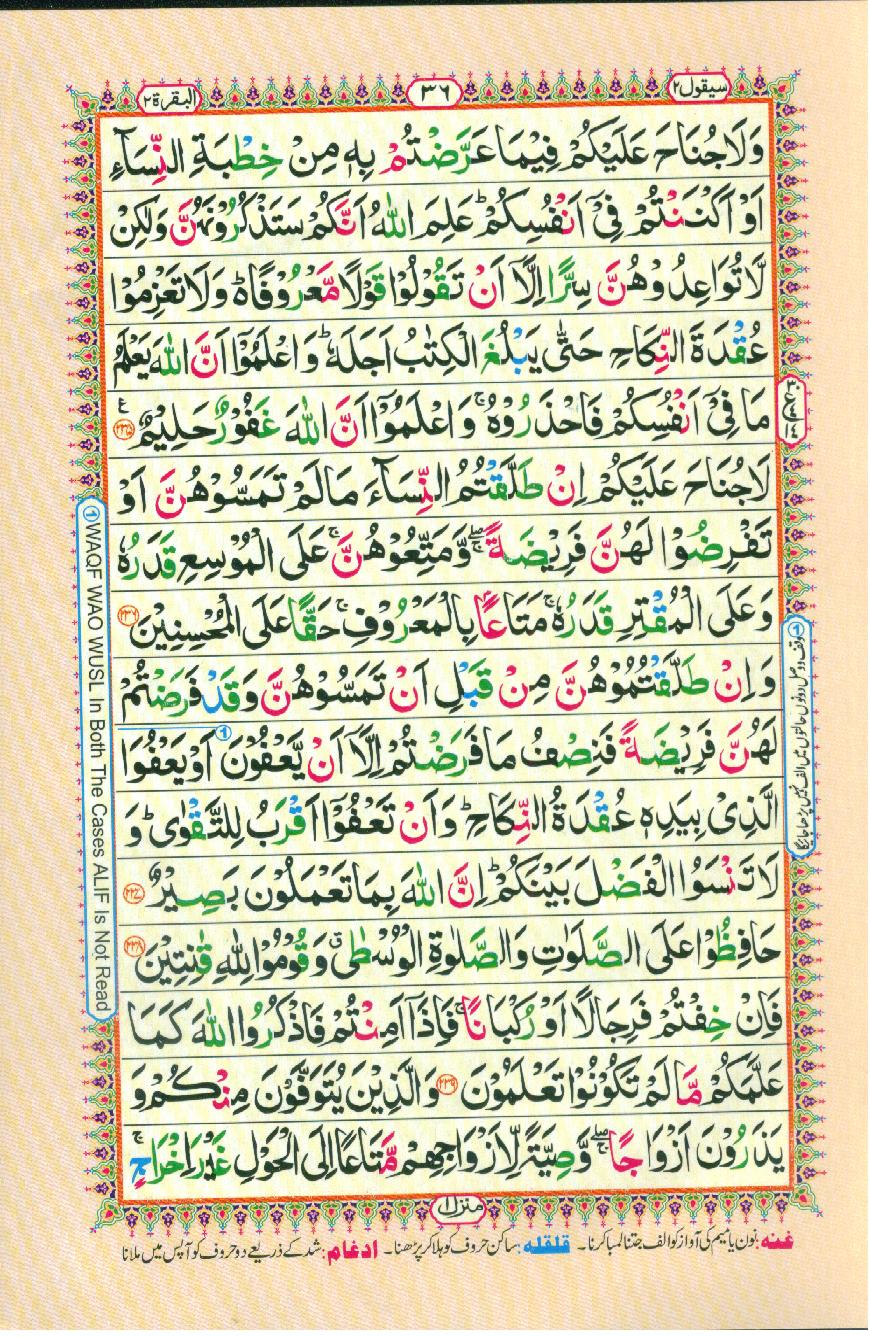 سيقول ٢
٣٦
البقرة ٢
وَلَا جُنَاحَ عَلَيْكُمْ فِيْمَا عَرَّضْتُمْ بِهٖ مِنْ خِطْبَةِ النِّسَآءِ
اَوْ اَكْنَنْتُمْ فِىْٓ اَنْفُسِكُمْ ؕ عَلِمَ اللّٰهُ اَنَّكُمْ سَتَذْكُرُوْنَهُنَّ وَلٰكِنْ
لَّا تُوَاعِدُوْهُنَّ سِرًّا اِلَّآ اَنْ تَقُوْلُوْا قَوْلًا مَّعْرُوْفًا ؕ وَلَا تَعْزِمُوْا
عُقْدَةَ النِّكَاحِ حَتّٰى يَبْلُغَ الْكِتٰبُ اَجَلَهٗ ؕ وَاعْلَمُوْٓا اَنَّ اللّٰهَ يَعْلَمُ
مَا فِىْٓ اَنْفُسِكُمْ فَاحْذَرُوْهُ ۚ وَاعْلَمُوْٓا اَنَّ اللّٰهَ غَفُوْرٌ حَلِيْمٌ ﴿۲۳۵﴾ ع
لَا جُنَاحَ عَلَيْكُمْ اِنْ طَلَّقْتُمُ النِّسَآءَ مَا لَمْ تَمَسُّوْهُنَّ اَوْ
تَفْرِضُوْا لَهُنَّ فَرِيْضَةً ۖۚ وَّمَتِّعُوْهُنَّ ۚ عَلَى الْمُوْسِعِ قَدَرُهٗ
وَعَلَى الْمُقْتِرِ قَدَرُهٗ ۚ مَتَاعًا ۢ بِالْمَعْرُوْفِ ۚ حَقًّا عَلَى الْمُحْسِنِيْنَ ﴿۲۳۶﴾
وَاِنْ طَلَّقْتُمُوْهُنَّ مِنْ قَبْلِ اَنْ تَمَسُّوْهُنَّ وَقَدْ فَرَضْتُمْ
لَهُنَّ فَرِيْضَةً فَنِصْفُ مَا فَرَضْتُمْ اِلَّآ اَنْ يَّعْفُوْنَ ① اَوْ يَعْفُوَا
الَّذِىْ بِيَدِهٖ عُقْدَةُ النِّكَاحِ ؕ وَاَنْ تَعْفُوْٓا اَقْرَبُ لِلتَّقْوٰى ؕ وَ
لَا تَنْسَوُا الْفَضْلَ بَيْنَكُمْ ؕ اِنَّ اللّٰهَ بِمَا تَعْمَلُوْنَ بَصِيْرٌ ﴿۲۳۷﴾
حَافِظُوْا عَلَى الصَّلَوٰتِ وَالصَّلٰوةِ الْوُسْطٰى ۗ وَقُوْمُوْا لِلّٰهِ قٰنِتِيْنَ ﴿۲۳۸﴾
فَاِنْ خِفْتُمْ فَرِجَالًا اَوْ رُكْبَانًا ۚ فَاِذَآ اَمِنْتُمْ فَاذْكُرُوا اللّٰهَ كَمَا
عَلَّمَكُمْ مَّا لَمْ تَكُوْنُوْا تَعْلَمُوْنَ ﴿۲۳۹﴾ وَالَّذِيْنَ يُتَوَفَّوْنَ مِنْكُمْ وَ
يَذَرُوْنَ اَزْوَاجًا ۖۚ وَّصِيَّةً لِّاَزْوَاجِهِمْ مَّتَاعًا اِلَى الْحَوْلِ غَيْرَ اِخْرَاجٍ ۚ
① وقف و وصل دونوں حالتوں میں الف نہیں پڑھا جائیگا
① WAQF WAO WUSL In Both The Cases ALIF Is Not Read
منزل ۱
غنہ: نون یا میم کی آواز کو الف جتنا لمبا کرنا۔ قلقلہ: ساکن حروف کو ہلا کر پڑھنا۔ ادغام: شد کے ذریعے دو حروف کو آپس میں ملانا